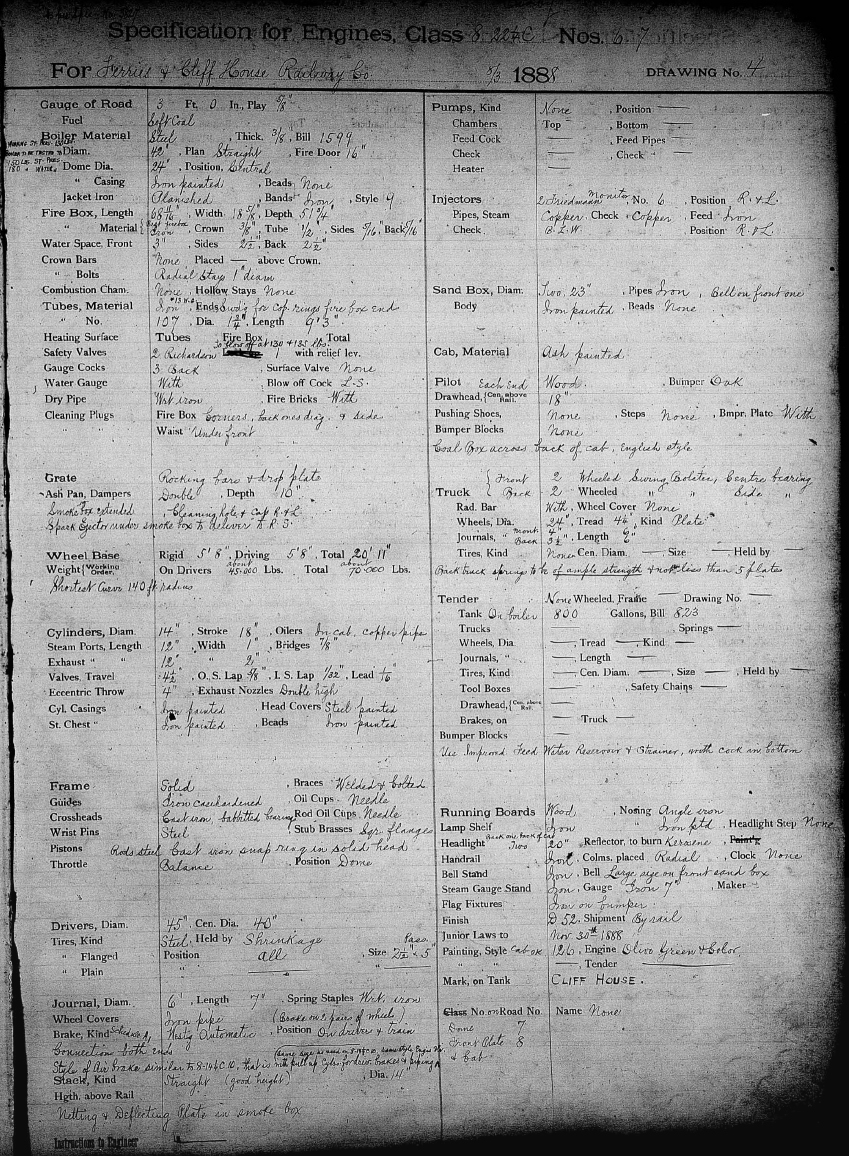 Specification for Engines, Class 8 22¼ C Nos. 6-7
For Ferries & Cliff House Railway Co. 8/3 1888 DRAWING No. 4
Gauge of Road 3 Ft. 0 In., Play 5/8"
Fuel Soft Coal
Boiler Material Steel , Thick. 3/8 , Bill 1599
Diam. 42" , Plan Straight , Fire Door 16"
Dome Dia. 24" , Position, Central
" Casing Iron painted , Beads None
Jacket Iron Planished , Bands Iron , Style 9
Fire Box, Length , Width , Depth 51¼
" Material Iron Crown 3/8" , Tube ½" , Sides 5/16" , Back 5/16"
Water Space, Front 3" , Sides 2½ , Back 2½"
Crown Bars None , Placed — above Crown.
" Bolts Radial Stays 1" diam
Combustion Cham. None , Hollow Stays None
Tubes, Material Iron #13 W.G. , Ends Swd'g for cop. rings fire box end
" No. 107 , Dia. 1¾" , Length 9'3"
Heating Surface Tubes Fire Box Total
to blow off at 130 & 135 lbs.
Safety Valves 2 Richardson 1 with relief lev.
Gauge Cocks 3 Back , Surface Valve None
Water Gauge With , Blow off Cock L-S.
Dry Pipe Wrt iron , Fire Bricks With
Cleaning Plugs Fire Box Corners, back ones diag. 9 Side
" " Waist Under front
Grate Rocking bars & drop plate
Ash Pan, Dampers Double , Depth 10"
Smoke box extended , Cleaning Hole & Cap R & L
Spark Ejector under smoke box to deliver to R.S.
Wheel Base Rigid 5' 8" , Driving 5'8" , Total 20' 11"
Weight Working Order, On Drivers about 45.000 Lbs. Total about 70.000 Lbs.
Shortest Curve 140 ft radius
Cylinders, Diam. 14" , Stroke 18" , Oilers In cab, copper pipe
Steam Ports, Length 12" , Width 1" , Bridges 7/8"
Exhaust " 12" " 2"
Valves, Travel 4½" , O. S. Lap 5/8" , I. S. Lap 1/32" , Lead 1/16"
Eccentric Throw 4" , Exhaust Nozzles Double high
Cyl. Casings Iron painted , Head Covers Steel painted
St. Chest " Iron painted , Beads Iron painted
Frame Solid , Braces Welded & bolted
Guides Iron casehardened , Oil Cups Needle
Crossheads Cast iron, babbitted bearing , Rod Oil Cups Needle
Wrist Pins Steel , Stub Brasses Sqr flanges
Pistons Rods steel Cast iron snap ring in solid head
Throttle Balance , Position Dome
Drivers, Diam. 45" Cen. Dia. 40"
Tires, Kind Steel , Held by Shrinkage Pass.
" Flanged Position all , Size 2½" x 5"
" Plain " — " —
Journal, Diam. 6" , Length 7" , Spring Staples Wrt. iron
Wheel Covers Iron pipe (Brake on 2 pairs of wheels)
Brake, Kind Schedule A, Westg Automatic , Position On driver & train
Connections both ends
Style of Air brake similar to 8-14¼ C 10, that is with pull up Cyls for driver brakes & piping
Stack, Kind Straight (good height) , Dia. 14"
Hgth. above Rail
Netting & Deflecting Plate in smoke box
Instructions to Engineer
Pumps, Kind None , Position —
Chambers Top — , Bottom —
Feed Cock — , Feed Pipes —
Check — , Check —
Heater —
Injectors 2 Friedmann monitor , No. 6 , Position R. & L.
Pipes, Steam Copper , Check Copper , Feed Iron
Check B.L.W. Position R & L.
Sand Box, Diam. Two, 23" , Pipes Iron , Bell on front one
Body Iron painted , Beads None
Cab, Material Ash painted
Pilot Each End Wood , Bumper Oak
Drawhead, Cen. above Rail. 18"
Pushing Shoes, None , Steps None , Bmpr. Plate With
Bumper Blocks None
Coal Box across back of cab, English style
Truck Front 2 Wheeled Swing Bolster, Centre bearing
Back 2 Wheeled " " Side "
Rad. Bar With , Wheel Cover None
Wheels, Dia. 24" , Tread 4¼ , Kind Plate
Journals, " Front 4" Back 3½" , Length 6"
Tires, Kind None Cen. Diam. — , Size — , Held by —
Back truck springs to be of ample strength & not less than 5 plates
Tender None Wheeled, Frame — Drawing No. —
Tank On boiler 800 Gallons, Bill 823
Trucks — , Springs —
Wheels, Dia. — , Tread — , Kind —
Journals, " — , Length —
Tires, Kind — Cen. Diam. — , Size — , Held by —
Tool Boxes — , Safety Chains —
Drawhead, Cen. above Rail. —
Brakes, on — Truck —
Bumper Blocks —
Use Improved Feed Water Reservoir & Strainer, with cock in bottom
Running Boards Wood , Nosing Angle iron
Lamp Shelf Iron " Iron ptd , Headlight Step None
Headlight Two 20" , Reflector, to burn Kerosene , Paint'g
Handrail Iron , Colms, placed Radial , Clock None
Bell Stand Iron , Bell Large size on front sand box
Steam Gauge Stand Iron , Gauge Iron 7" , Maker —
Flag Fixtures Iron on bumper
Finish D 52 , Shipment By rail
Junior Laws to Nov. 30th 1888
Painting, Style Cab OK 126 , Engine Olive Green & Color
" " , Tender —
Mark, on Tank CLIFF HOUSE.
Class No. on Road No. Name None
Dome 7
Front Plate 8
& Cab